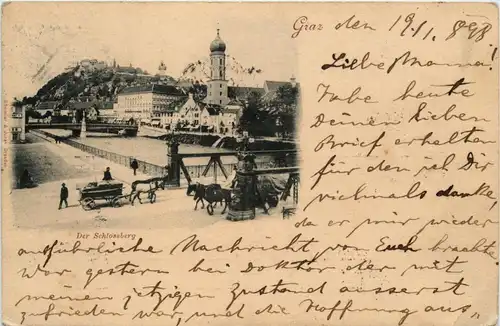 Graz den 19./1. 898
Liebe Mama!
Habe heute
Deinen lieben
Brief erhalten
für den ich Dir
vielmals danke,
da er mir wieder
Der Schlossberg
ausführliche Nachricht von Euch brachte
War gestern bei Doktor der mit
meinem jetzigen Zustand äusserst
zufrieden war, und die Hoffnung aus„